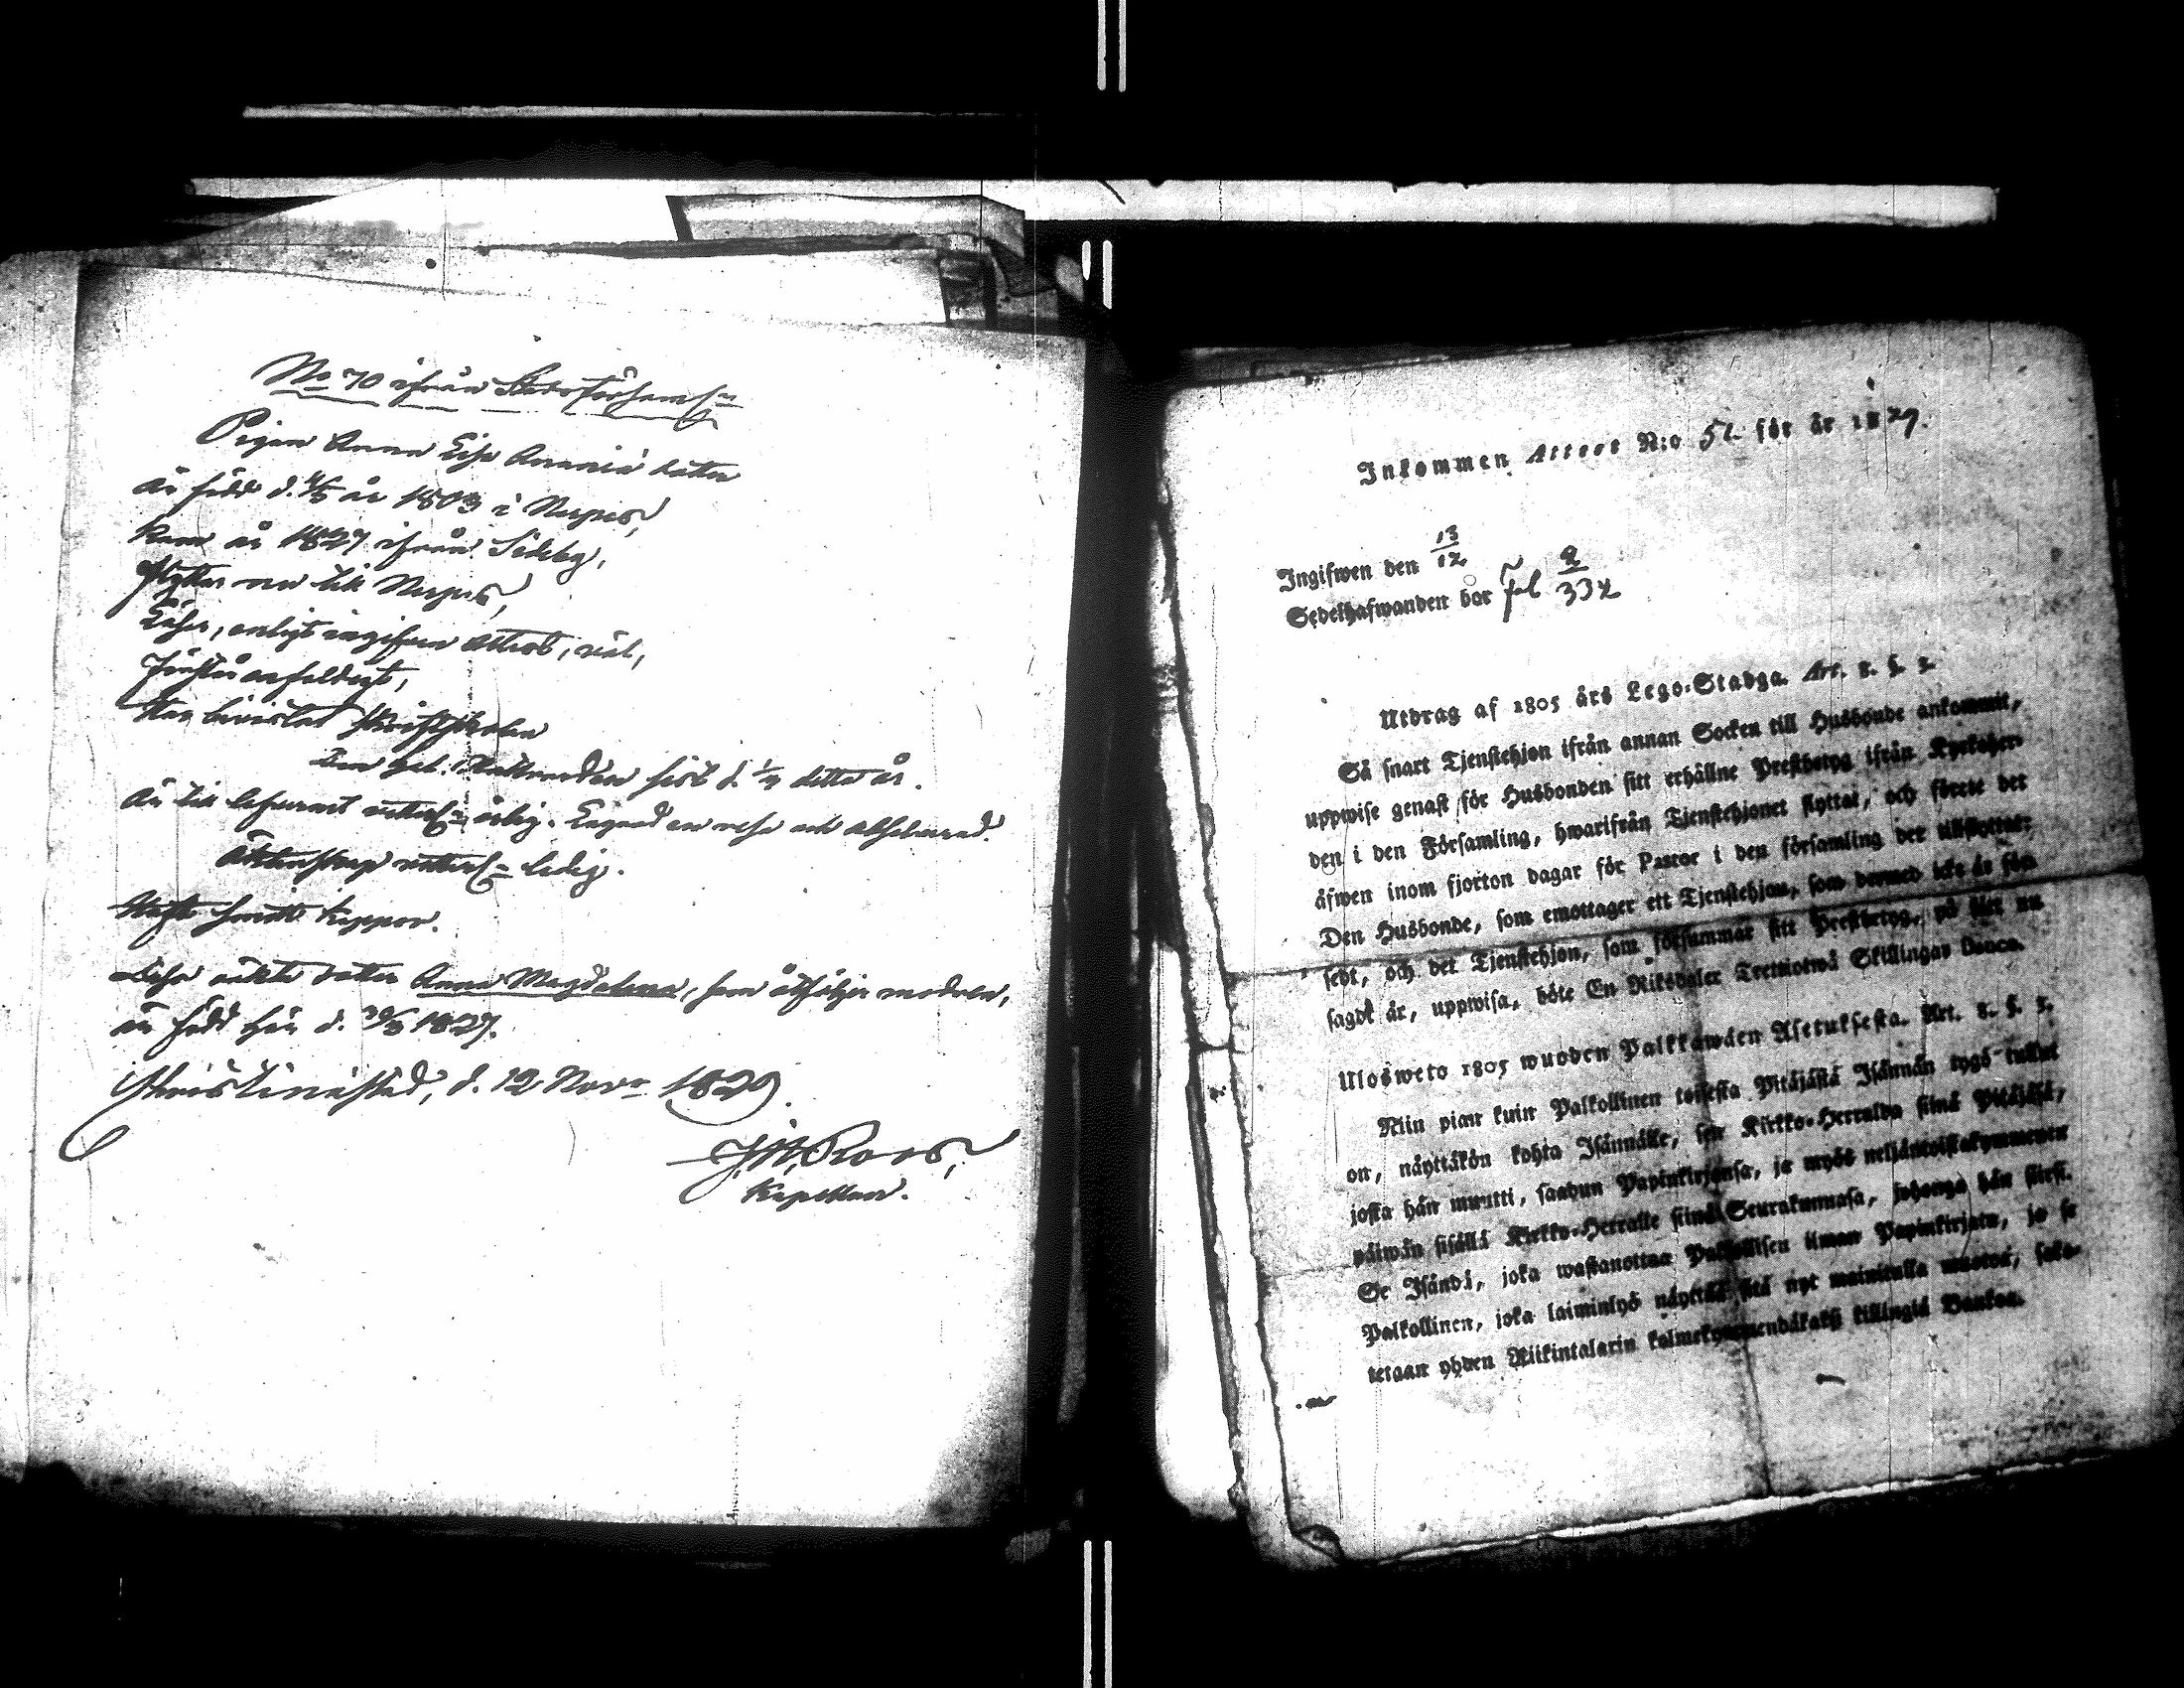 No 70 ifrån Stadsförsaml:n
Pigan Anna Lisa Ananiæ dotter
är född d. 4/5 år 1803 i Nerpes,
kom år 1827 ifrån Sideby,
flyttar nu till Nerpes,
Läser, enligt ingifven attest, väl,
Förstår enfaldigt,
Har bevistat skriftskolan
Den hel. Nattvarden sist d. 1/11 detta år.
Är till lefvernet vitterl:n ärlig. Begår en resa och absolverad.
Äktenskap vitterl:n ledig.
Haft koppor.
Dess oäkta dotter Anna Magdalena, som åtföljer modren,
är född här d. 29/3 1827.
Christinæstad, d. 12 Nov:r 1829.
Roos,
Kapellan.
Inkommen Attest N:o 52 för år 1829.
Ingifwen den 13/12
Sedelhafwanden bor Fol 2/332
Utdrag af 1805 års Lego-Stadga. Art. 8. §. 2.
Så snart Tjenstehjon ifrån annan Socken till Husbonde ankommit,
uppwise genast för Husbonden sitt erhållne Prestbetyg ifrån Kyrkoher-
den i den Församling, hwarifrån Tjenstehjonet flyttat, och förete det
äfwen inom fjorton dagar för Pastor i den församling det tillflyttat:
Den Husbonde, som emottager ett Tjenstehjon, som dermed icke är för-
sedt, och det Tjenstehjon, som försummar sitt Prestbetyg, på sätt nu
sagdt är, uppwisa, böte En Riksdaler Trettiotwå Skillingar Banco.
Ulosweto 1805 wuoden Palkkawäen Asetuksesta. Art. 8. §. 2.
Niin pian kuin Palkollinen toisesta Pitäjästä Isännän tygö tullut
on, näyttäkön kohta Isännälle, sen Kirkko-Herralda siinä Pitäjäsä,
josta hän muutti, saadun Papinkirjansa, ja myös neljäntoistakymmenen
päiwän sisällä Kirkko-Herralle siinä Seurakunnasa, johonga hän siirsi.
Se Isändä, joka wastanottaa Palkollisen ilman Papinkirjata, ja se
Palkollinen, joka laiminlyö näyttää sitä nyt mainitulla muotoa, sako-
tetaan yhden Riikintalarin kolmekymmendäkaksi killingiä Bankoa.